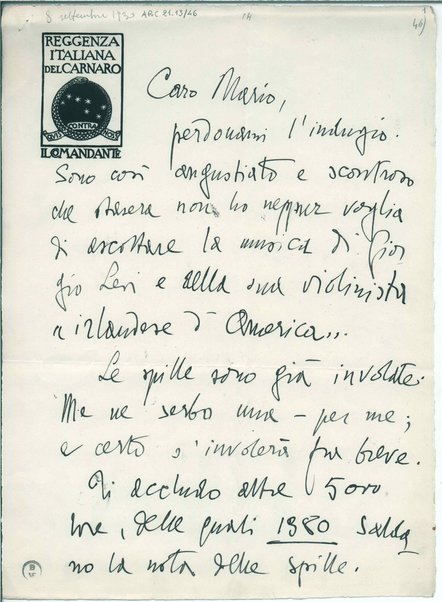 8 settembre 1930 ARC. 21.13/46
14
46
REGGENZA
ITALIANA
DEL CARNARO
QVIS CONTRA NOS
IL COMANDANTE
Caro Mario,
perdonami l'indugio.
Sono così angustiato e scontroso
che stasera non ho neppur voglia
di ascoltare la musica di Gior
gio Levi e della sua violinista
irlandese d'America...
Le spille sono già involate.
Me ne serbo una – per me;
e certo s'involerà fra breve.
Ti accludo altre 5000
lire, delle quali 1980 salda
no la nota delle spille.